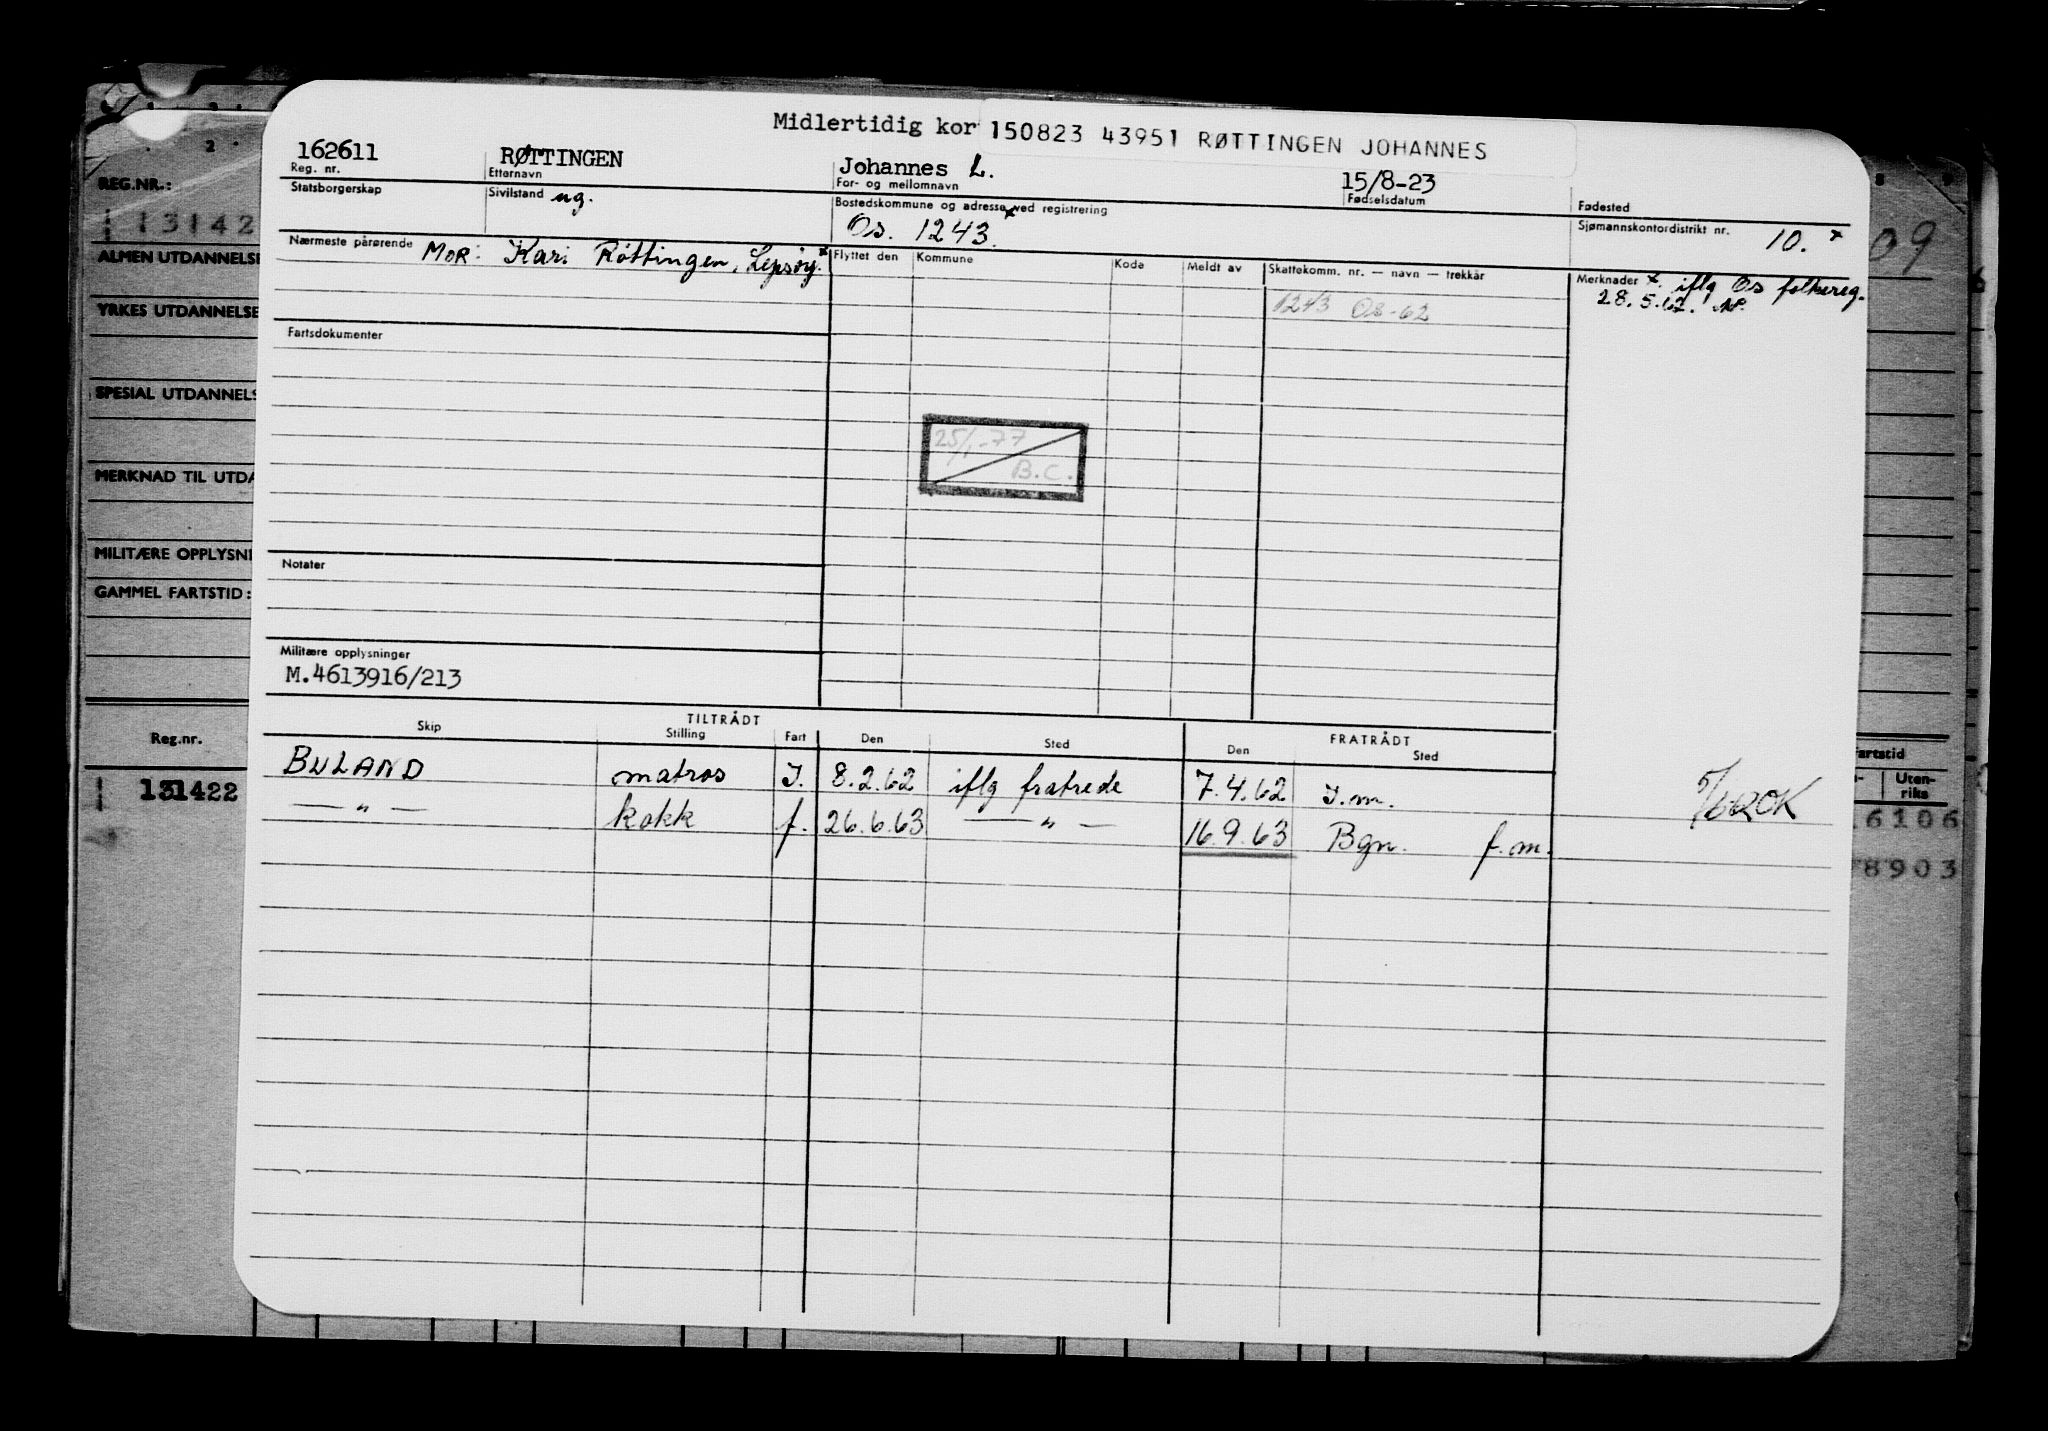 Midlertidig kor 150823 43951 RØTTINGEN JOHANNES
162611 RØTTINGEN Johannes L. 15/8-23
Reg. nr. Etternavn For- og mellomnavn Fødselsdatum Fødested
Statsborgerskap Sivilstand ug. Bostedskommune og adresse ved registrering Sjømannskontordistrikt nr. 10. x
Os. 1243. x
Nærmeste pårørende MOR: Kari Røttingen, Lepsøy. x Flyttet den Kommune Kode Meldt av Skattekomm. nr. — navn — trekkår Merknader x. iflg Os folkereg.
1243 Os-62 28.5.62.
Fartsdokumenter
25/1-77
B.C.
Notater
Militære opplysninger
M.4613916/213
TILTRÅDT FRATRÅDT
Skip Stilling Fart Den Sted Den Sted
BULAND matros I. 8.2.62 iflg fratrede 7.4.62 I.m.
— " — kokk f. 26.6.63 — " — 16.9.63 Bgn. f.m.
REG.NR.:
13142
ALMEN UTDANNELSE
YRKES UTDANNELSE
SPESIAL UTDANNELS
MERKNAD TIL UTDA
MILITÆRE OPPLYSNI
GAMMEL FARTSTID:
Reg.nr.
131422
09
artstid
Uten-
riks
6106
8903